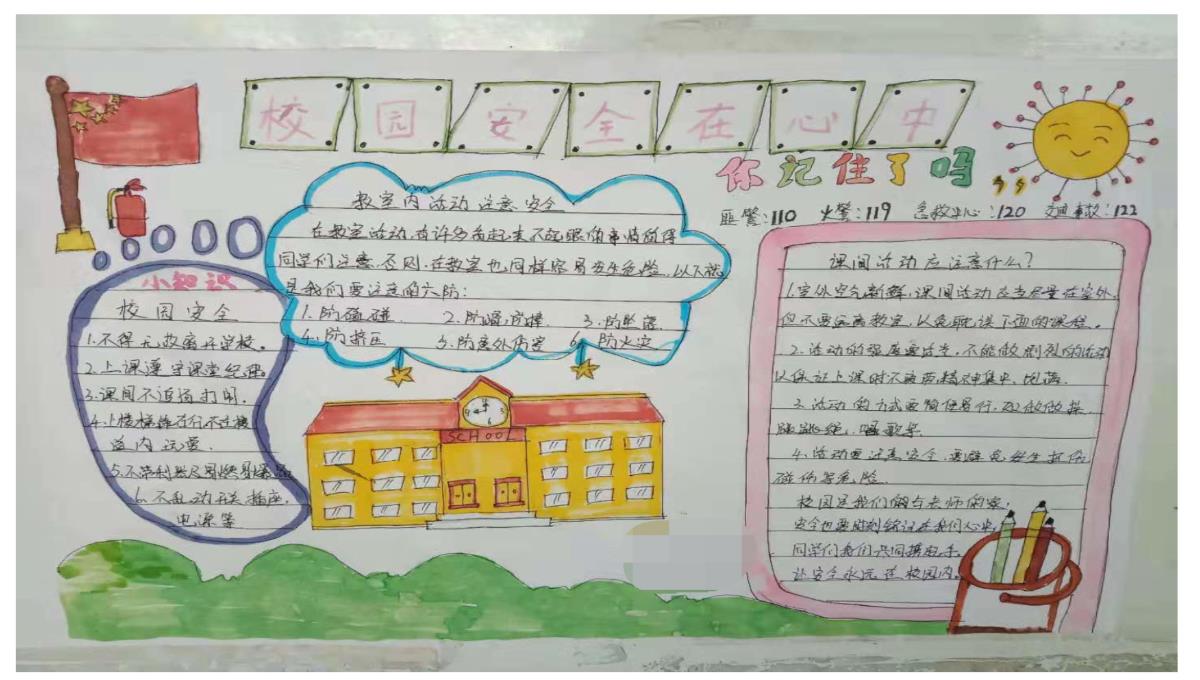 校园安全在心中
你记住了吗
匪警:110 火警:119 急救中心:120 交通事故:122
教室内活动注意安全
在教室活动,有许多看起来不起眼的事情值得
同学们注意,否则,在教室也同样容易发生危险,以下就
是我们要注意的六防:
1.防磕碰 2.防滑,防摔 3.防坠落
4.防挤压 5.防意外伤害 6.防火灾
小知识
校园安全
1.不得无故离开学校。
2.上课遵守课堂纪律。
3.课间不追逐打闹,
4.上楼梯靠右行不在楼
道内玩耍.
5.不带利器及易燃易爆品
6.不乱动开关插座,
电源等
SCHOOL
课间活动应注意什么?
1.室外空气新鲜,课间活动应当尽量在室外,
但不要远离教室,以免耽误下面的课程。
2.活动的强度要适当,不能做剧烈的活动
以保证上课时不疲劳,精神集中,饱满.
3.活动的方式要简便易行,如做做操
跳跳绳,唱歌等.
4.活动要注意安全,要避免发生扭伤
碰伤等危险.
校园是我们的与老师的家;
安全也要时刻铭记在我们心中,
同学们我们共同携起手,
让安全永远在校园内。